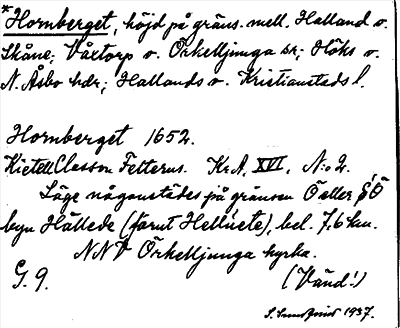 *Hornberget, höjd på gräns. mell. Halland o.
Skåne; Våxtorp o. Örkelljunga sr; Höks o.
N. Åsbo hdr; Hallands o. Kristianstads l.
Hornberget 1652.
Kietell Classon Felterus. Kr. A. XVI, N:o 2.
Läge någonstädes på gränsen Ö eller SÖ
byn Hållede (förut Hellinete), bel. 7,6 km.
NNV Örkelljunga kyrka.
G. 9. (Vänd!)
1937.